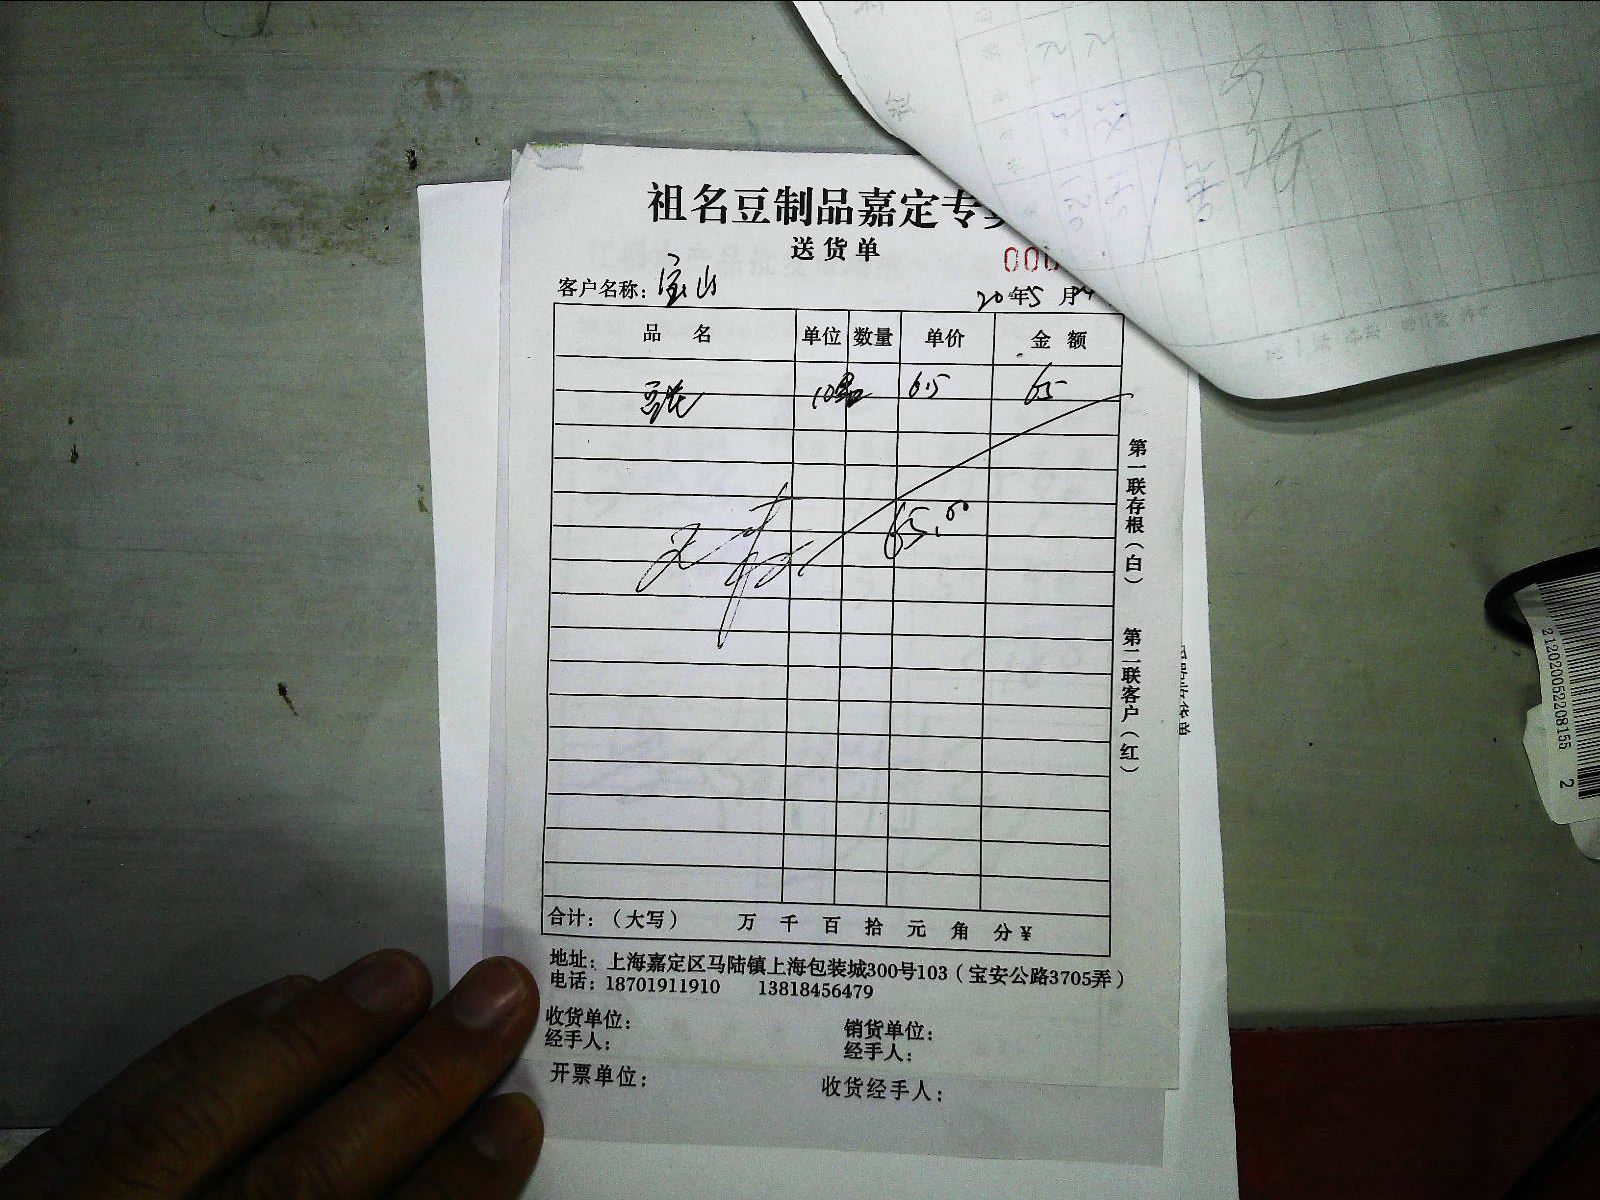 祖名豆制品嘉定专
送货单
000
客户名称：宝山
20年5月
品名 单位 数量 单价 金额
10 6.5 65
65.00
第一联存根（白）
第二联客户（红）
合计：（大写） 万 千 百 拾 元 角 分¥
地址：上海嘉定区马陆镇上海包装城300号103（宝安公路3705弄）
电话：18701911910 13818456479
收货单位： 销货单位：
经手人： 经手人：
开票单位： 收货经手人：
212020052208155 2